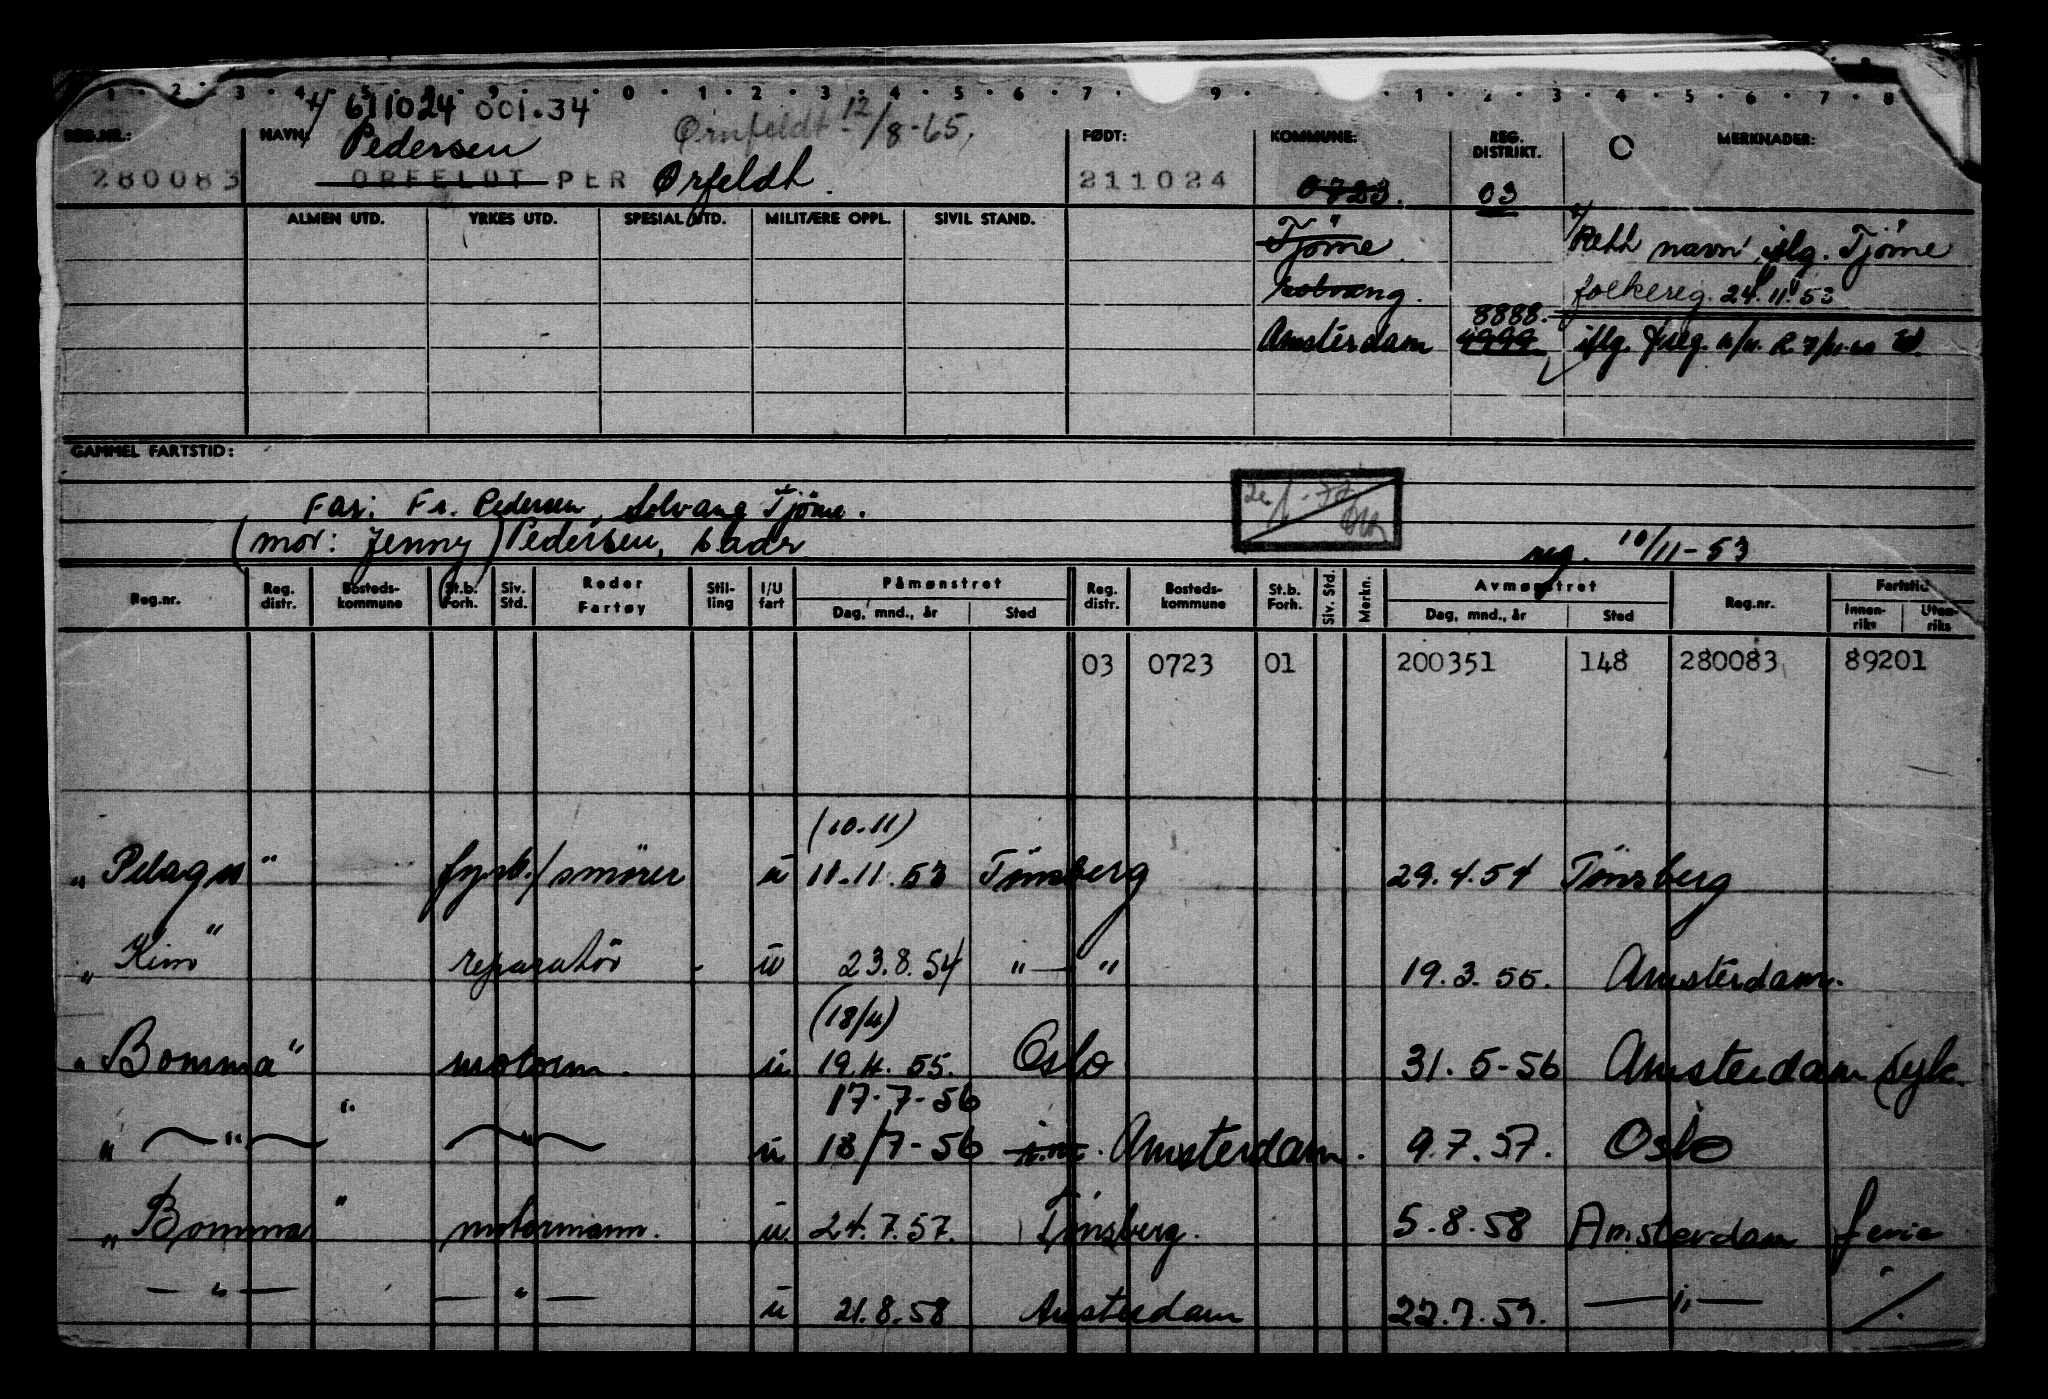 1 · 2 · 3 · 4 · 5 · 8 · 9 · 0 · 1 · 2 · 3 · 4 · 5 · 6 · 7 · 9 · 1 · 2 · 3 · 4 · 5 · 6 · 7 · 8
611024 001.34
REG.NR.: NAVN: Pedersen Ørnfeldt 12/8-65. FØDT: KOMMUNE: REG. DISTRIKT. MERKNADER:
280083 ORFELDT PER Ørfeldt. 211024 0723. 03
ALMEN UTD. YRKES UTD. SPESIAL UTD. MILITÆRE OPPL. SIVIL STAND.
Tjöme Rett navn iflg. Tjöme
Solvang. folkereg. 24.11.53
8888.
Amsterdam 4999 iflg.
GAMMEL FARTSTID:
Far: Fr. Pedersen, Solvang Tjöme.
(mor: Jenny) Pedersen, s. adr
reg. 10/11-53
Reg.nr. Reg. distr. Bosteds-kommune St.b. Forh. Siv. Std. Reder Fartøy Stil-ling I/U fart Påmønstret Reg. distr. Bosteds-kommune St.b. Forh. Siv. Std. Merkn. Avmønstret Reg.nr. Fartstid
Dag, mnd., år Sted Dag, mnd., år Sted Innen-riks Uten-riks
03 0723 01 200351 148 280083 89201
(10.11)
„Pelagos" fyrb./smörer u 11.11.53 Tönsberg 29.4.54 Tönsberg
„Kim" reparatör - u 23.8.54 "—" 19.3.55. Amsterdam.
(18/4)
„Bomma" motorm. u 19.4.55. Oslo 31.5-56 Amsterdam syk.
17-7-56
„ — " — " — " — u 18/7-56 Amsterdam. 9.7.57. Oslo
„Bomma" motormann. u 24.7.57. Tönsberg. 5.8.58 Amsterdam ferie
— " — — " — u 21.8.58 Amsterdam 22.7.59. — " — ./.